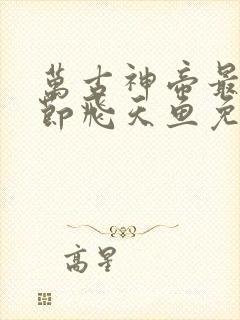 萬古神帝最
節飛天魚免
高星